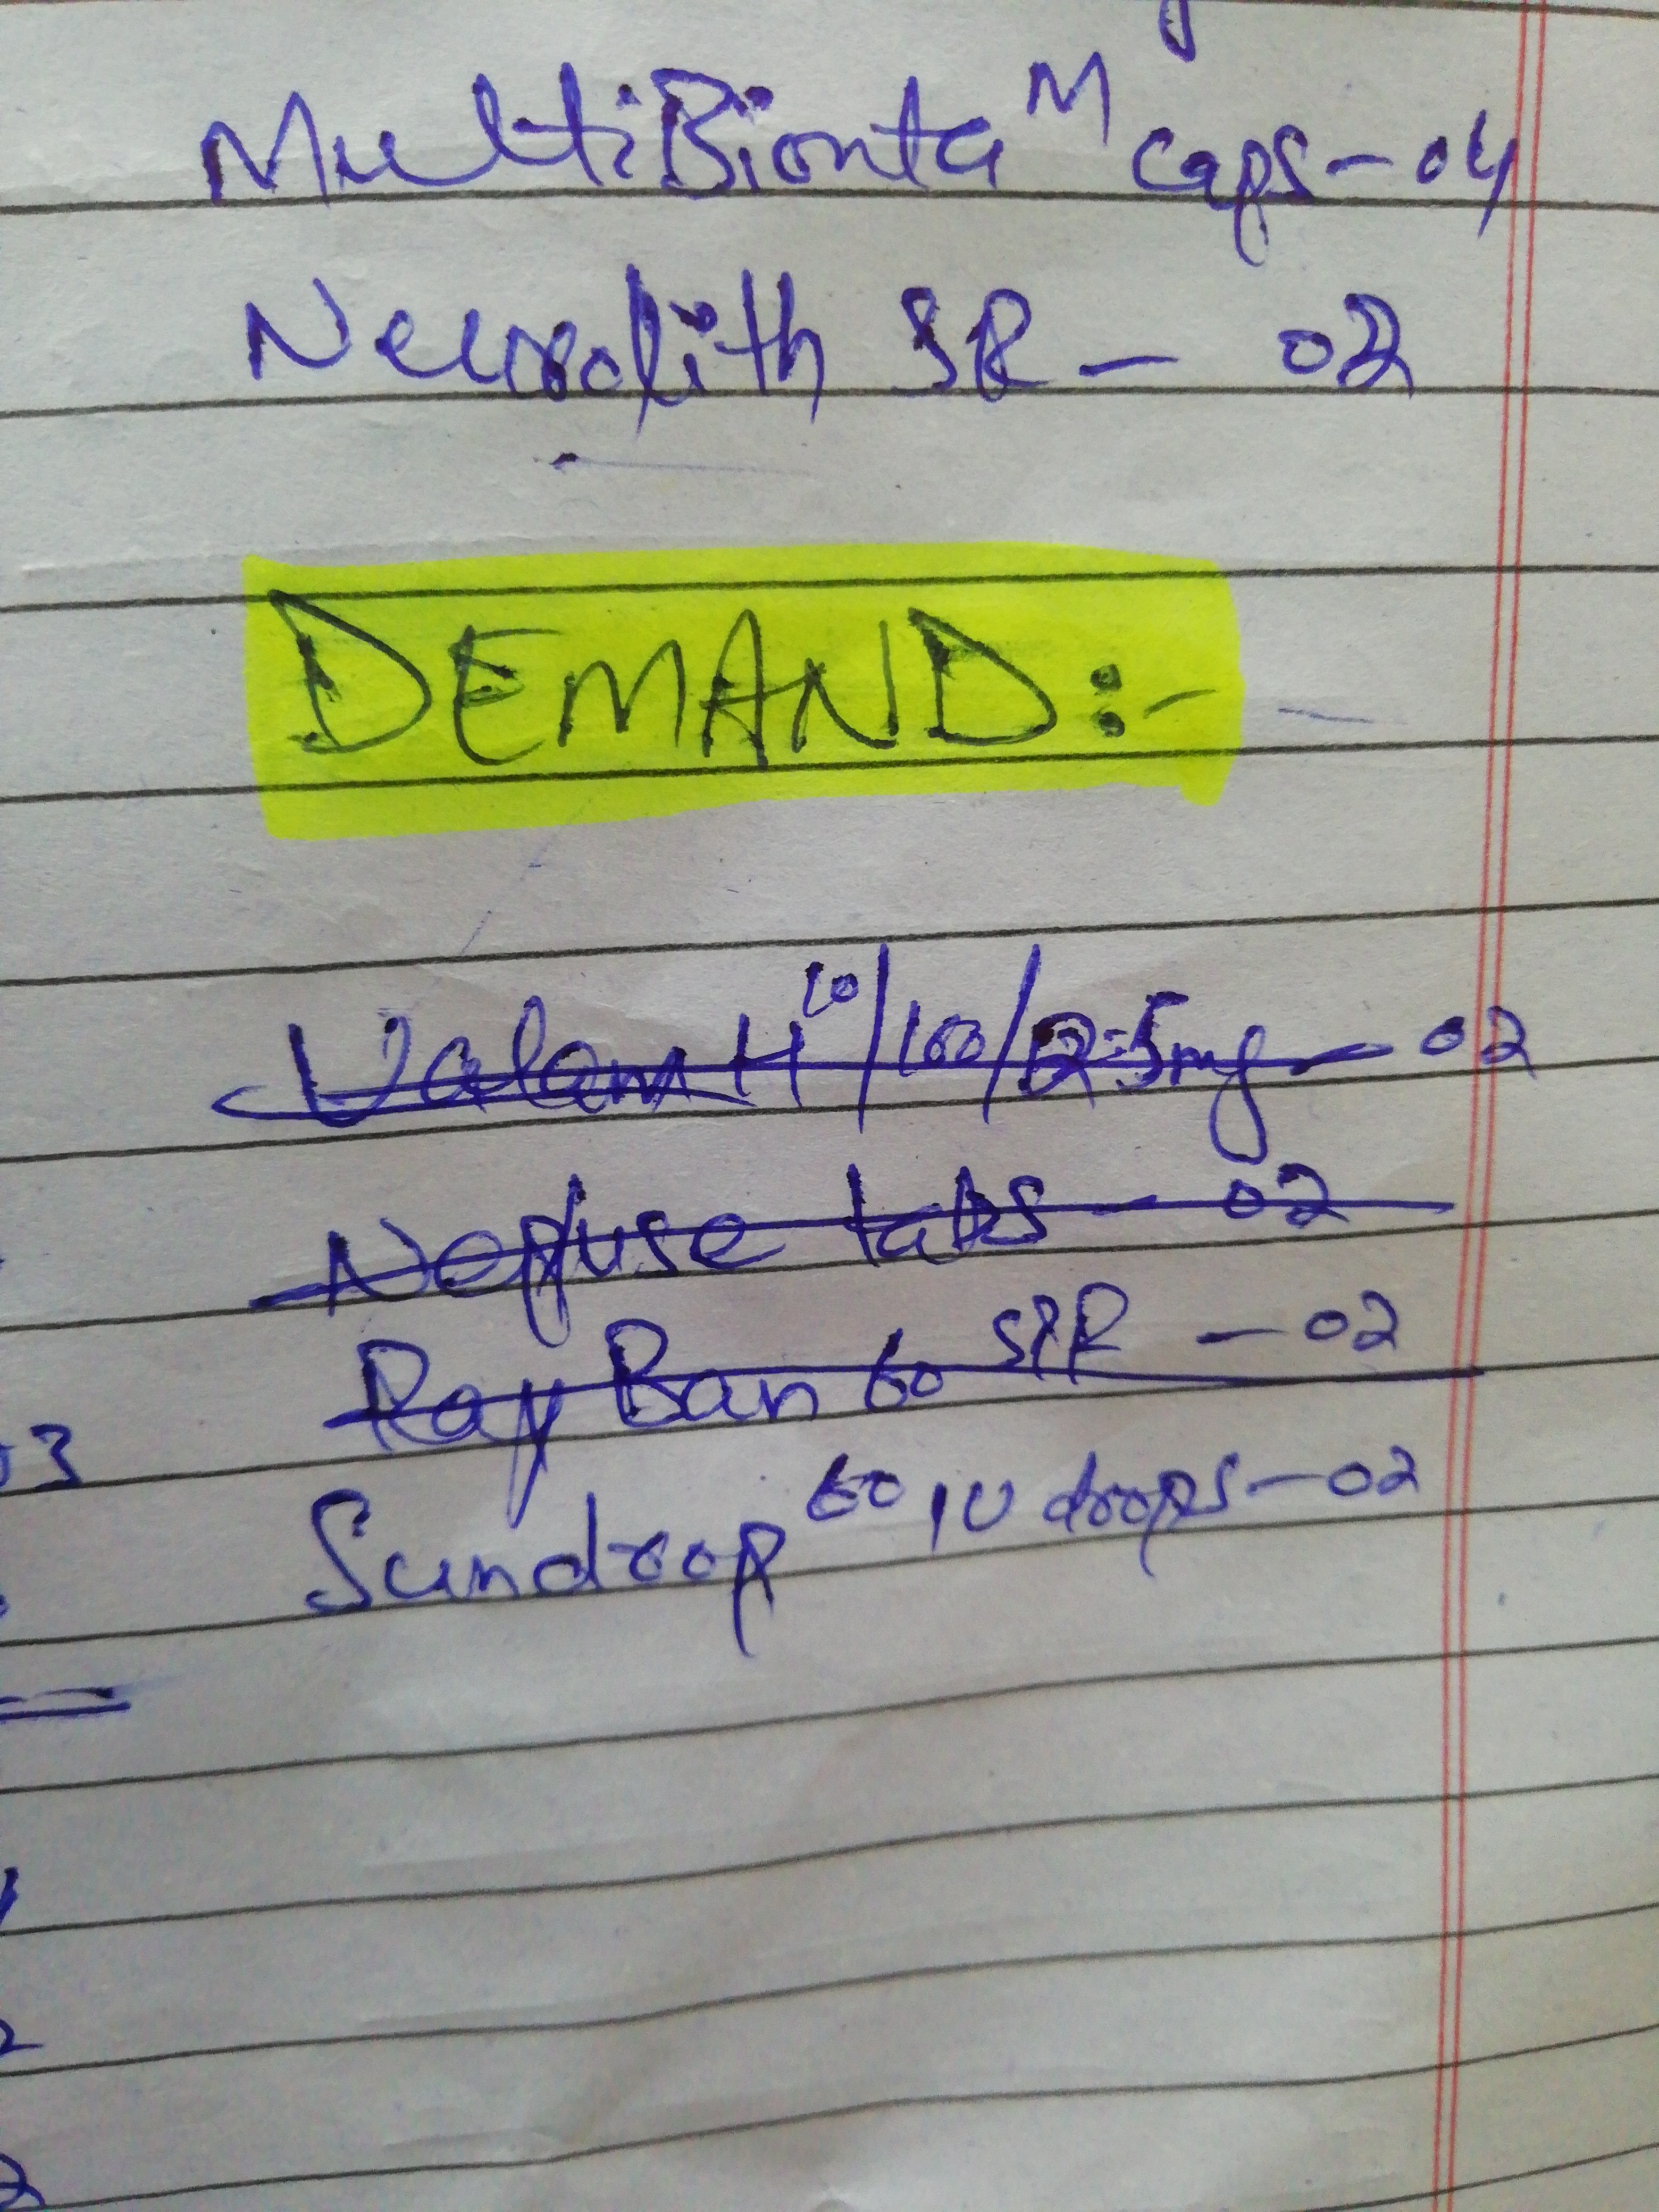 MultiBionta M caps - 04
Neurolith SR - 02
DEMAND:-
Valam H 10/160/12.5mg - 02
Nepfuse tabs - 02
Ray Ban 60 SPR - 02
03
Sundrop 60,IU drops - 02
2